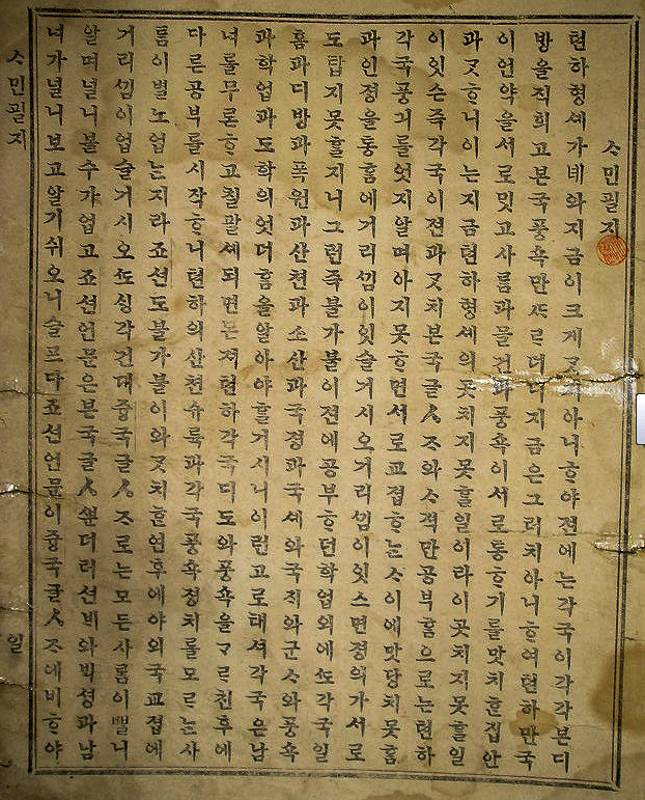 ᄉᆞ민필지
텬하형셰가녜와지금이크게ᄀᆞᆺ지아니ᄒᆞ야젼에는각국이각각본디
방을직희고본국풍쇽만ᄯᆞ르더니지금은그러치아니ᄒᆞ여텬하만국
이언약을서로밋고사ᄅᆞᆷ과물건과풍쇽이서로통ᄒᆞ기를맛치ᄒᆞᆫ집안
과ᄀᆞᆺᄒᆞ니이는지금텬하형셰의곳치지못ᄒᆞᆯ일이라이곳치지못ᄒᆞᆯ일
이잇슨즉각국이젼과ᄀᆞᆺ치본국글ㅅᄌᆞ와ᄉᆞ젹만공부ᄒᆞᆷ으로는텬하
각국풍긔를엇지알며아지못ᄒᆞ면서로교졉ᄒᆞ는ᄉᆞ이에맛당치못ᄒᆞᆷ
과인졍을통ᄒᆞᆷ에거리ᄭᅵᆷ이잇슬거시오거리ᄭᅵᆷ이잇스면졍의가서로
도탑지못ᄒᆞᆯ지니그런즉불가불이젼에공부ᄒᆞ던학업외에ᄯᅩ각국일
홈과디방과폭원과산쳔과소산과국졍과국셰와국ᄌᆡ와군ᄉᆞ와풍쇽
과학업과도학의엇더ᄒᆞᆷ을알아야ᄒᆞᆯ거시니이런고로태셔각국은남
녀를무론ᄒᆞ고칠팔셰되면몬져텬하각국디도와풍쇽을ᄀᆞᄅᆞ친후에
다른공부를시작ᄒᆞ니텬하의산쳔슈륙과각국풍쇽졍치를모르는사
ᄅᆞᆷ이별노업는지라죠션도불가불이와ᄀᆞᆺ치ᄒᆞᆫ연후에야외국교졉에
거리ᄭᅵᆷ이업슬거시오ᄯᅩᄉᆡᆼ각건대즁국글ㅅᄌᆞ로는모든사ᄅᆞᆷ이ᄲᆞᆯ니
알며널니볼수가업고죠션언문은본국글ㅅᄲᅮᆫ더러션ᄇᆡ와ᄇᆡᆨ셩과남
녀가널니보고알기쉬오니슬프다죠션언문이즁국글ㅅᄌᆞ에비ᄒᆞ야
ᄉᆞ민필지 일